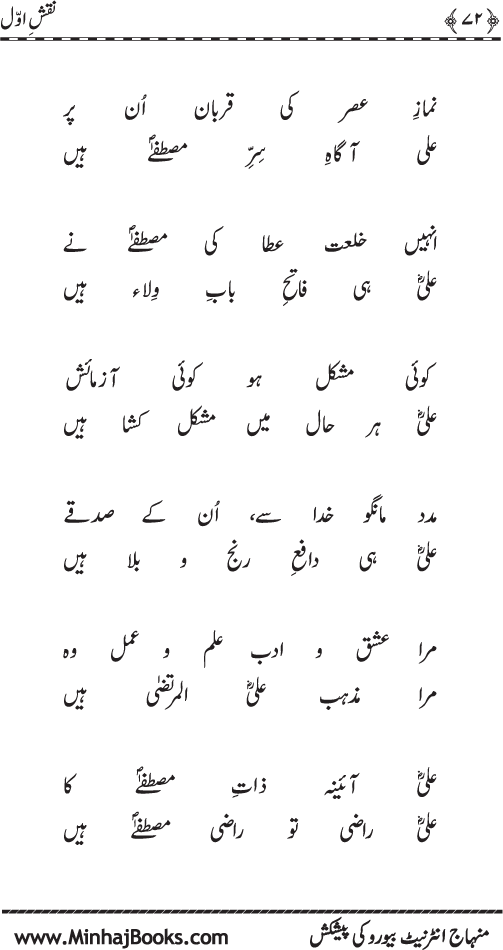 ﴿۷۲﴾ نقشِ اوّل
نمازِ عصر کی قربان اُن پر
علی آگاہِ سِرِّ مصطفیٰؐ ہیں
انہیں خلعت عطا کی مصطفیٰؐ نے
علیؓ ہی فاتحِ بابِ وِلاء ہیں
کوئی مشکل ہو کوئی آزمائش
علیؓ ہر حال میں مشکل کشا ہیں
مدد مانگو خدا سے، اُن کے صدقے
علیؓ ہی دافعِ رنج و بلا ہیں
مرا عشق و ادب علم و عمل وہ
مرا مذہب علیؓ المرتضیٰ ہیں
علیؓ آئینہ ذاتِ مصطفیٰؐ کا
علیؓ راضی تو راضی مصطفیٰؐ ہیں
منہاج انٹرنیٹ بیورو کی پیشکش www.MinhajBooks.com